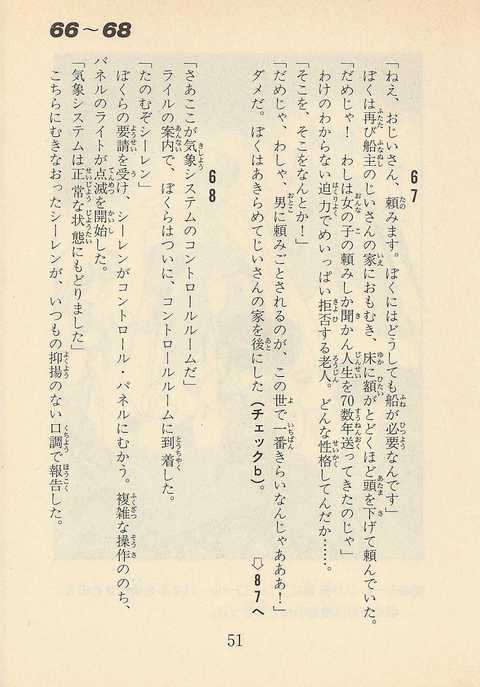 66～68
67
「ねえ、おじいさん、頼みます。ぼくにはどうしても船が必要なんです」
ぼくは再び船主のじいさんの家におもむき、床に額がとどくほど頭を下げて頼んでいた。
「だめじゃ！　わしは女の子の頼みしか聞かん人生を70数年送ってきたのじゃ」
わけのわからない迫力でめいっぱい拒否する老人。どんな性格してんだか……。
「そこを、そこをなんとか！」
「だめじゃ、わしゃ、男に頼みごとされるのが、この世で一番きらいなんじゃあああ！」
ダメだ。ぼくはあきらめてじいさんの家を後にした（チェックb）。
⇨87へ
68
「さあここが気象システムのコントロールルームだ」
ライルの案内で、ぼくらはついに、コントロールルームに到着した。
「たのむぞシーレン」
ぼくらの要請を受け、シーレンがコントロール・パネルにむかう。複雑な操作ののち、
パネルのライトが点滅を開始した。
「気象システムは正常な状態にもどりました」
こちらにむきなおったシーレンが、いつもの抑揚のない口調で報告した。
51